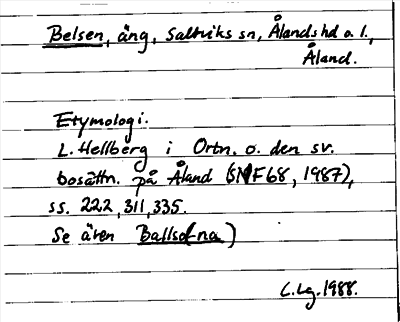 Belsen, äng, Saltviks sn, Ålands hd o. l.,
Åland.
Etymologi.
L. Hellberg i Ortn. o. den sv.
bosättn. på Åland (SNF 68, 1987),
ss. 222, 311, 335.
Se även
C. Lg. 1988.